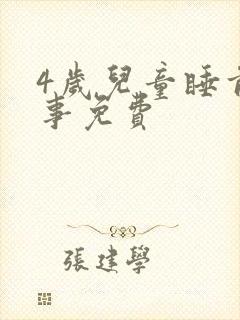 4歲兒童睡前
事免費
張建學